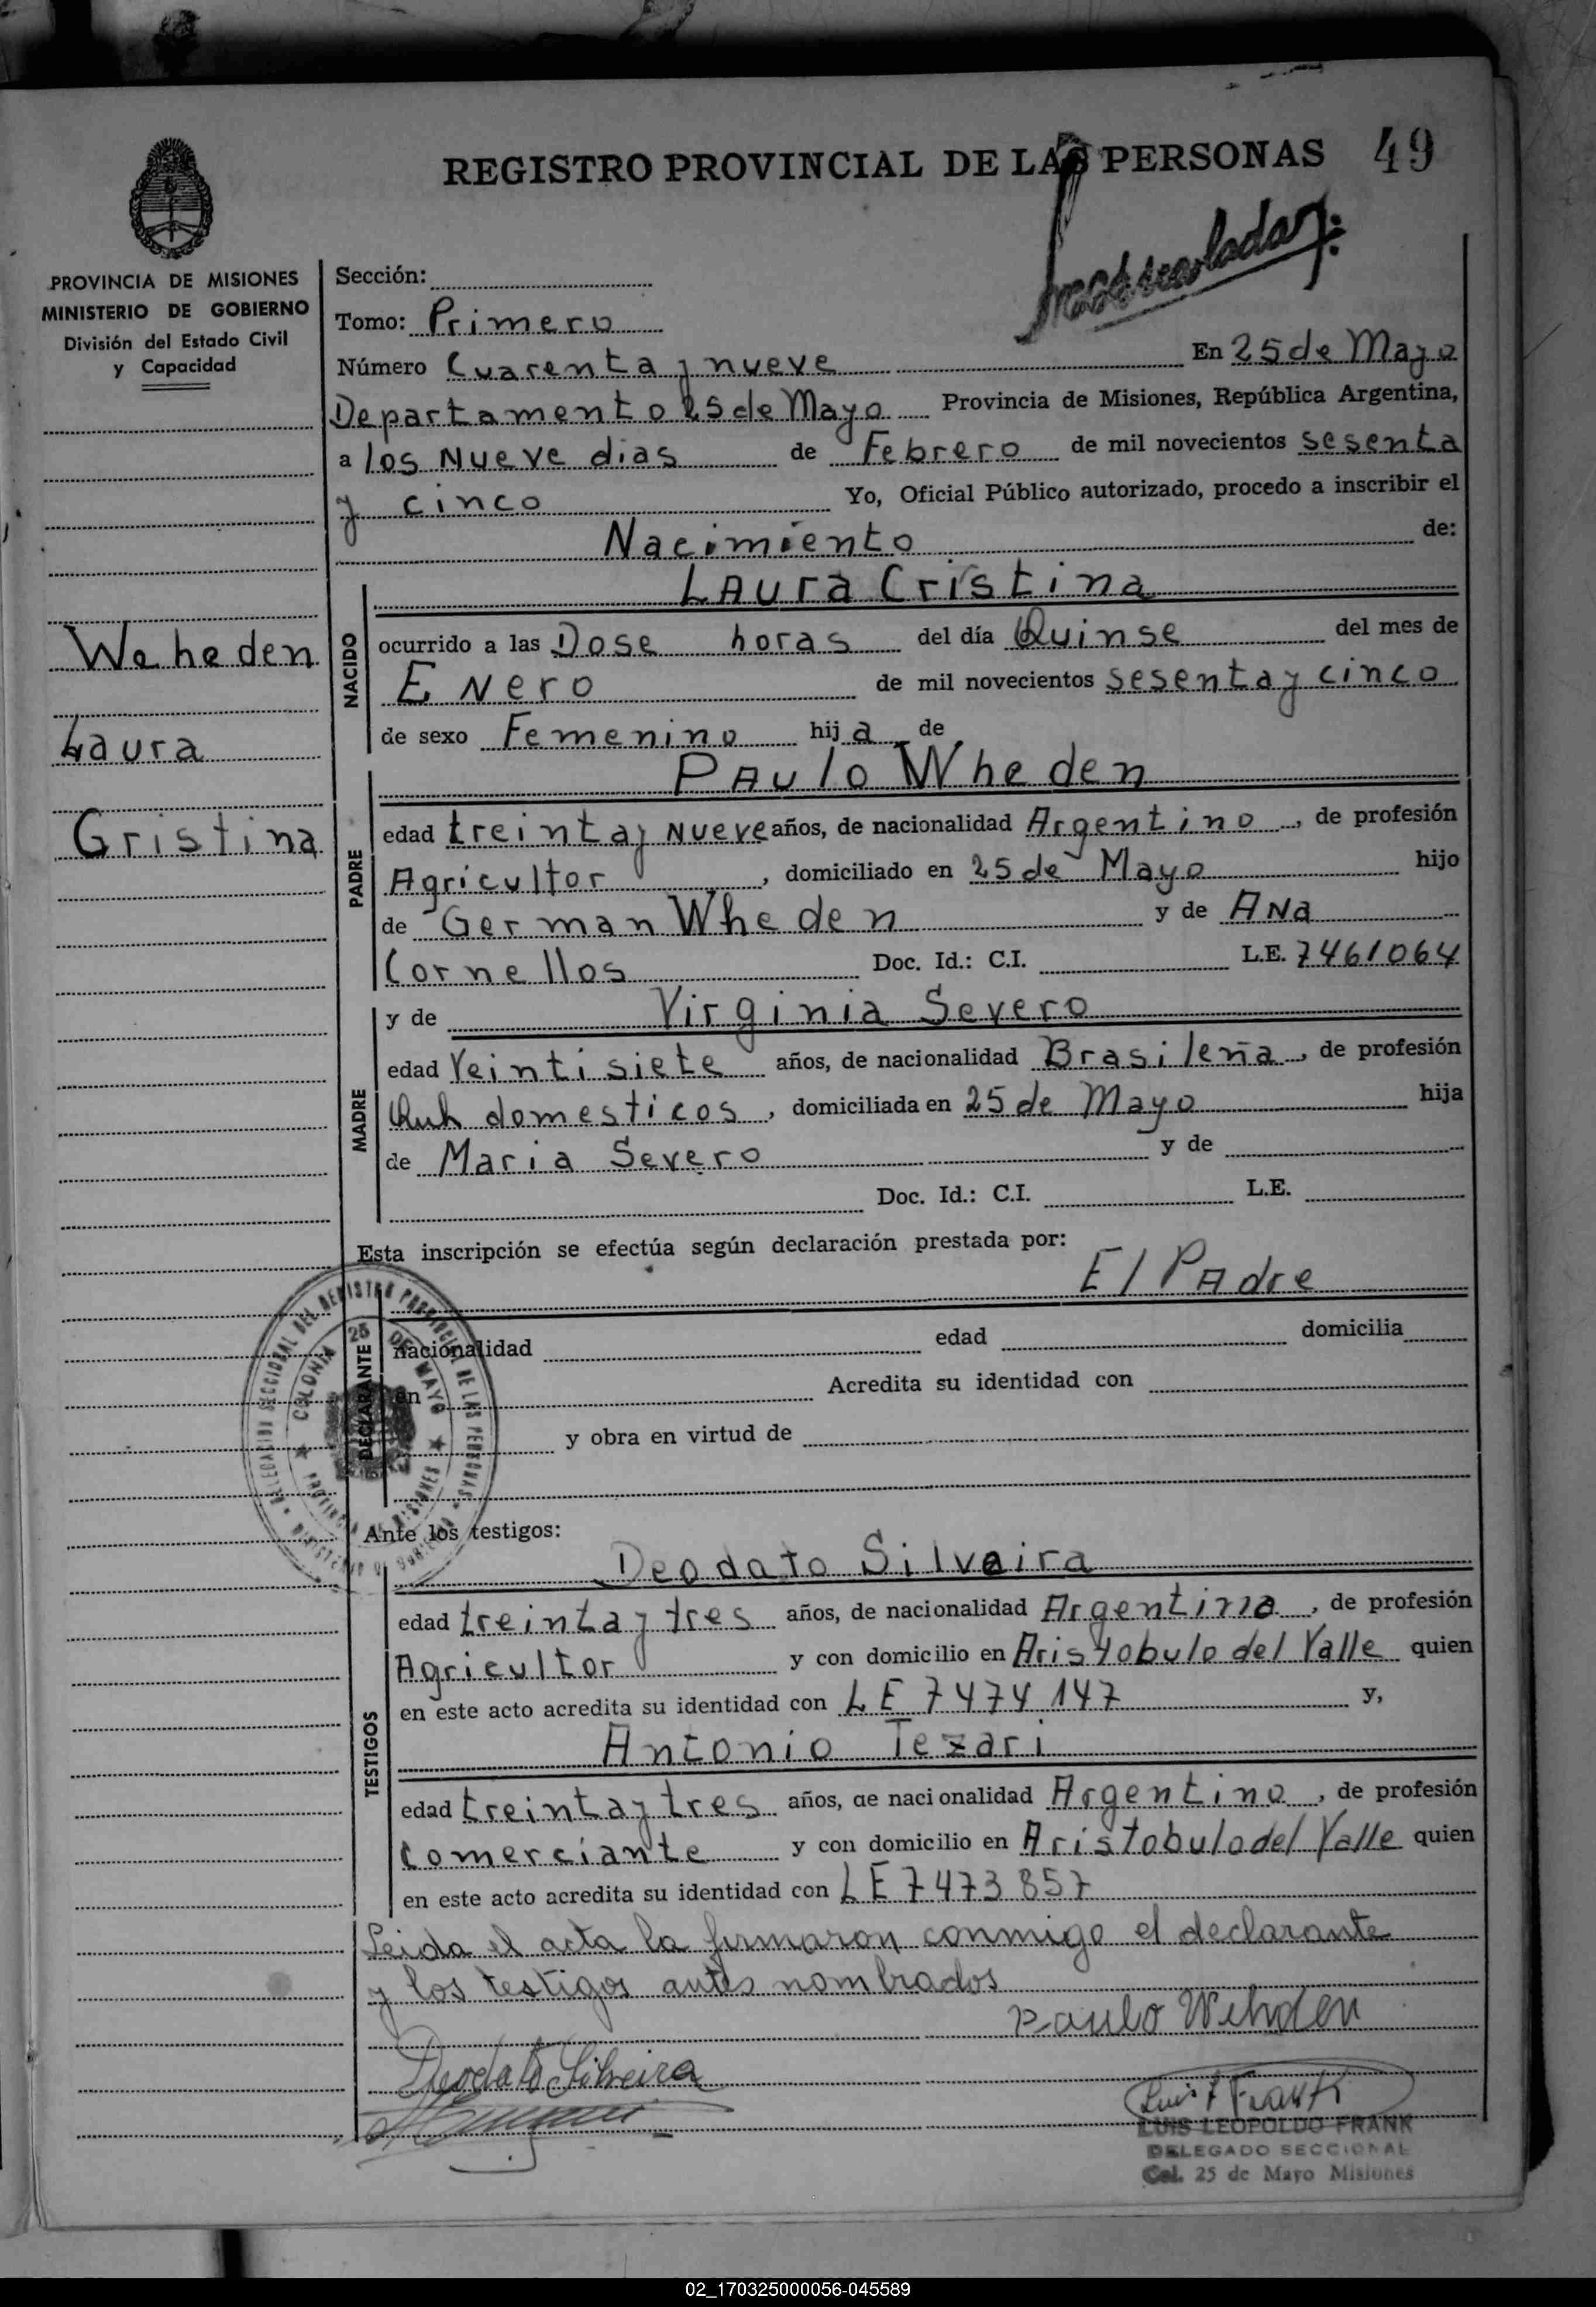 REGISTRO PROVINCIAL DE LAS PERSONAS 49
PROVINCIA DE MISIONES
MINISTERIO DE GOBIERNO
División del Estado Civil
y Capacidad
Weheden
Laura
Gristina
Sección:
Tomo: Primero
Número Cuarenta y nueve En 25 de Mayo
Departamento 25 de Mayo Provincia de Misiones, República Argentina,
a los Nueve dias de Febrero de mil novecientos sesenta
y cinco Yo, Oficial Público autorizado, procedo a inscribir el
Nacimiento de:
LAura Cristina
NACIDO
ocurrido a las Dose horas del día Quinse del mes de
ENero de mil novecientos sesenta y cinco
de sexo Femenino hija de
PAulo Wheden
PADRE
edad treinta y Nueve años, de nacionalidad Argentino, de profesión
Agricultor, domiciliado en 25 de Mayo hijo
de German Wheden y de ANa
Cornellos Doc. Id.: C.I. L.E. 7461064
y de Virginia Severo
MADRE
edad Veintisiete años, de nacionalidad Brasileña, de profesión
Quh domesticos, domiciliada en 25 de Mayo hija
de Maria Severo y de
Doc. Id.: C.I. L.E.
Esta inscripción se efectúa según declaración prestada por:
El PAdre
DECLARANTE
nacionalidad edad domicilia
en Acredita su identidad con
y obra en virtud de
DELEGACION SECCIONAL DEL REGISTRO PROVINCIAL DE LAS PERSONAS
COLONIA 25 DE MAYO
PROVINCIA DE MISIONES
MINISTERIO DE GOBIERNO
Ante los testigos:
Deodato Silveira
TESTIGOS
edad treinta y tres años, de nacionalidad Argentina, de profesión
Agricultor y con domicilio en Aristobulo del Valle quien
en este acto acredita su identidad con LE 7474147 y,
Antonio Tezari
edad treinta y tres años, de nacionalidad Argentino, de profesión
Comerciante y con domicilio en Aristobulo del Valle quien
en este acto acredita su identidad con LE 7473857
Leida el acta la firmaron conmigo el declarante
y los testigos antes nombrados
Paulo Wehden
Deodato Silveira
Luis L Frank
LUIS LEOPOLDO FRANK
DELEGADO SECCIONAL
Col. 25 de Mayo Misiones
02_170325000056-045589